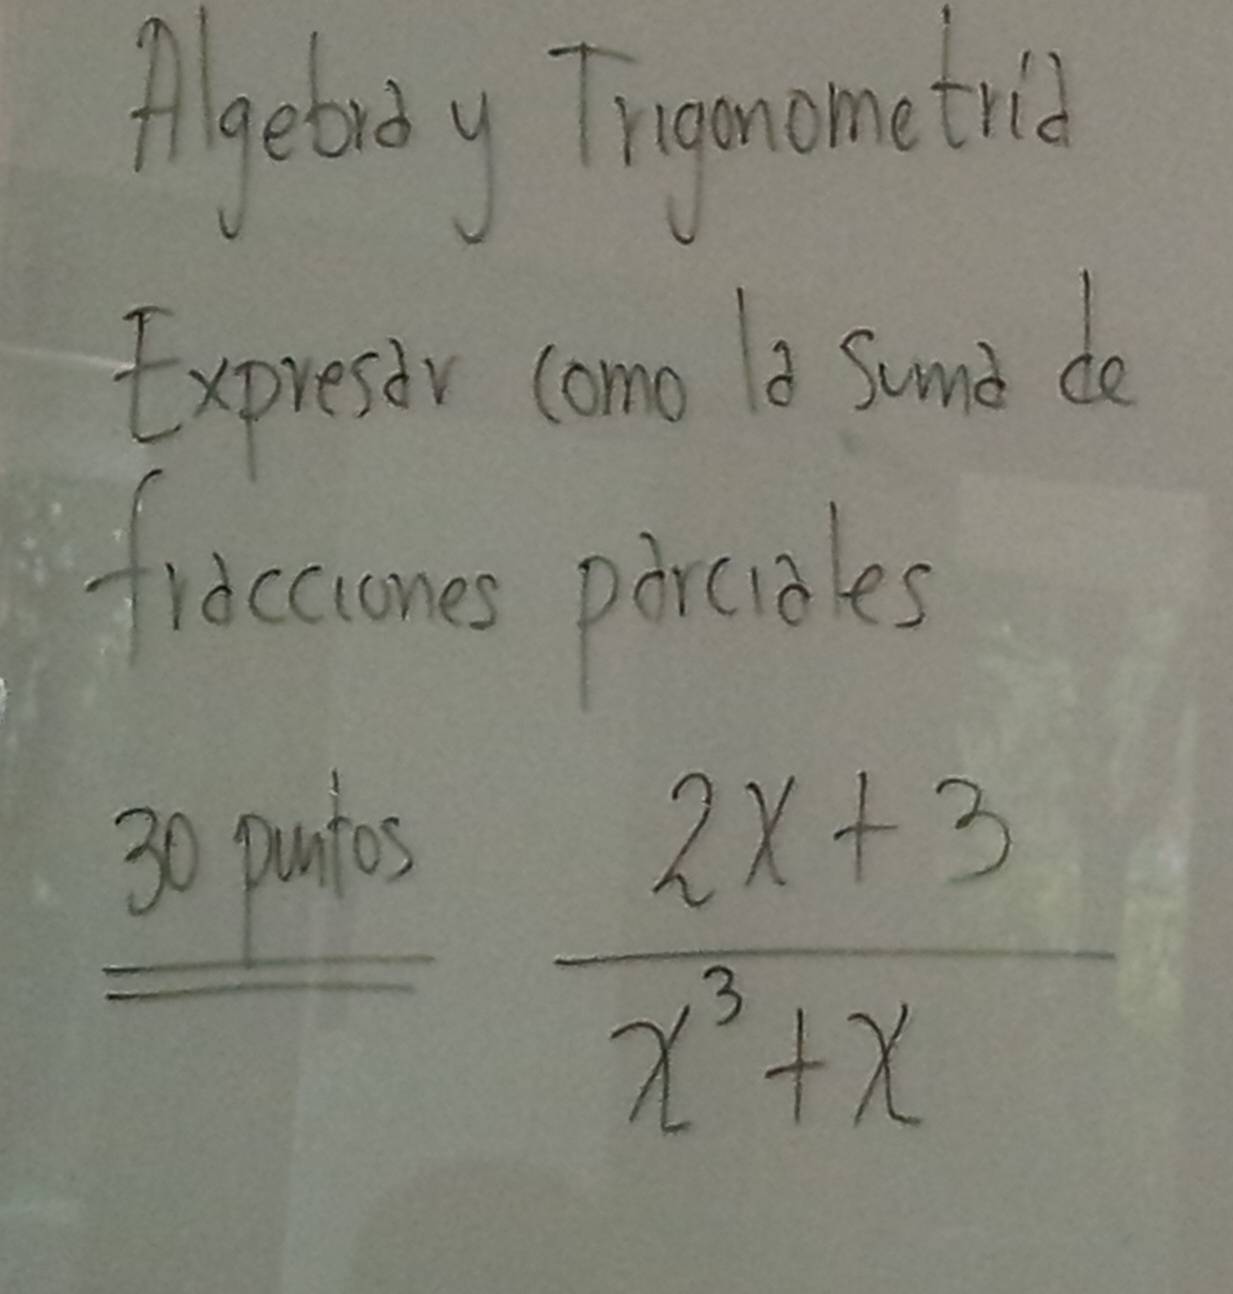 Algebra y Trigonometría
Expresar como la suma de
fracciones parciales
30 puntos
2x + 3
x³ + x